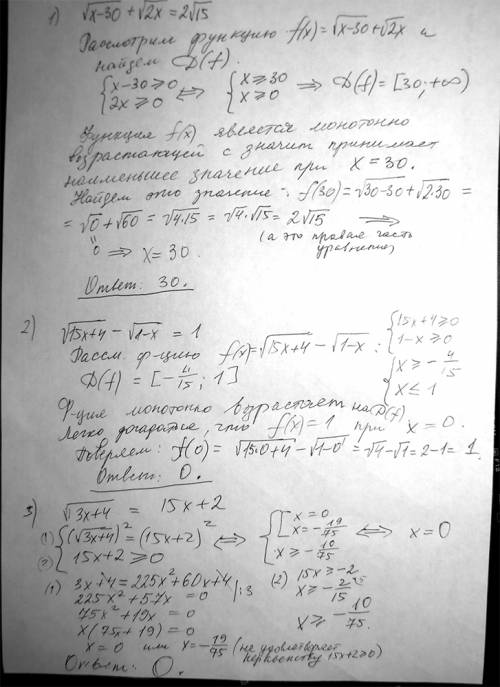 1) √x-30 + √2x = 2√15
Рассмотрим функцию f(x)=√x-30+√2x и
найдем D(f).
{x-30≥0 {x≥30
{2x≥0 ⇔ {x≥0 ⇒ D(f)=[30;+∞)
Функция f(x) является монотонно
возрастающей с значит принимает
наименьшее значение при x=30.
Найдем это значение: f(30)=√30-30+√2·30 =
= √0+√60 = √4·15 = √4·√15 = 2√15 ⇒
(а это правая часть
уравнения)
0 ⇒ x=30.
Ответ: 30.
2) √15x+4 - √1-x = 1
{15x+4≥0
{1-x≥0
Рассм. ф-цию f(x)=√15x+4 - √1-x :
D(f) = [-4/15; 1]
{x≥-4/15
{x≤1
Ф-ция монотонно возрастает на D(f)
Легко догадатся, что f(x)=1 при x=0.
Поверяем: f(0) = √15·0+4 - √1-0 = √4-√1=2-1=1
Ответ: 0.
3) √3x+4 = 15x+2
(1) {(√3x+4)² = (15x+2)² ⇔ {[x=0 x=-19/75 ⇔ x=0
(2) {15x+2≥0 {x≥-10/75
(1) 3x+4=225x²+60x+4
225x²+57x=0 |:3
75x²+19x=0
x(75x+19)=0
x=0 или x=-19/75 (не удовлетворяет
неравенству 15x+2≥0)
(2) 15x≥-2
x≥-2/15
x≥-10/75.
Ответ: 0.